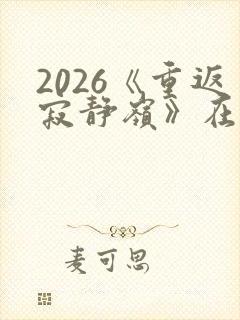 2026《重返
寂静嶺》在
麦可思